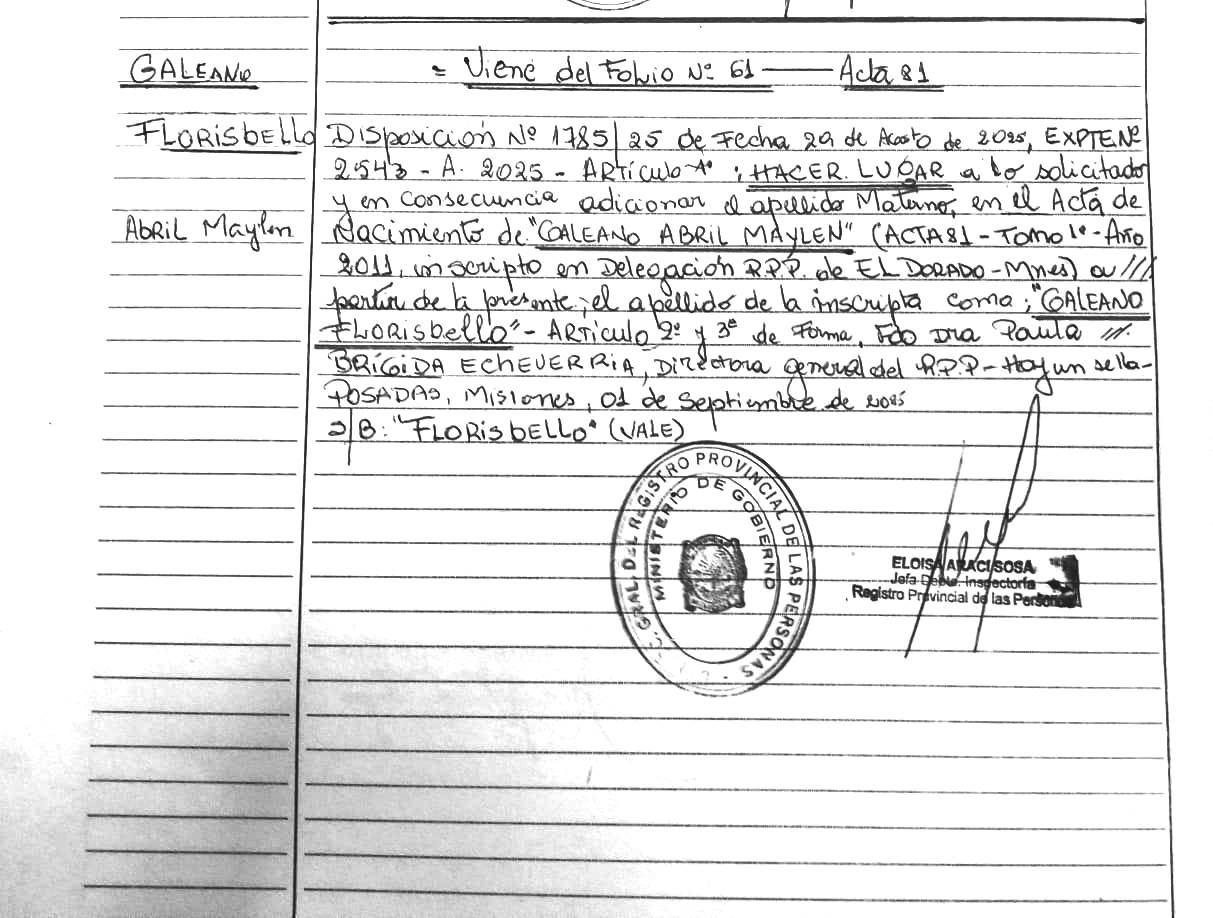 GALEANO
= Viene del Folio Nº 61 —— Acta 81
FLORISbELLO
DISposición Nº 1785/25 de Fecha 29 de Agosto de 2025, EXPTE.Nº
2543 - A. 2025 - ARTículo 1º : HACER LUGAR a lo solicitado
y en consecuencia adicionar el apellido Materno, en el Acta de
Abril Maylen
Nacimiento de "GALEANO ABRIL MAYLEN" (ACTA 81 - Tomo 1º - Año
2011, inscripto en Delegación R.P.P. de EL DORADO - Mnes) a ///
partir de la presente, el apellido de la inscripta como; "GALEANO
FLORISbELLO" - ARTículo 2º y 3º de Forma, Fdo Dra Paula ///.
BRÍGIDA ECHEVERRIA, Directora general del R.P.P - Hay un sello -
POSADAS, Misiones, 01 de Septiembre de 2025
S/B: "FLORISbELLO" (VALE)
GRAL. DEL REGISTRO PROVINCIAL DE LAS PERSONAS
MINISTERIO DE GOBIERNO
ELOISA ARACI SOSA
Jefa Dpto. Inspectoría
Registro Provincial de las Personas